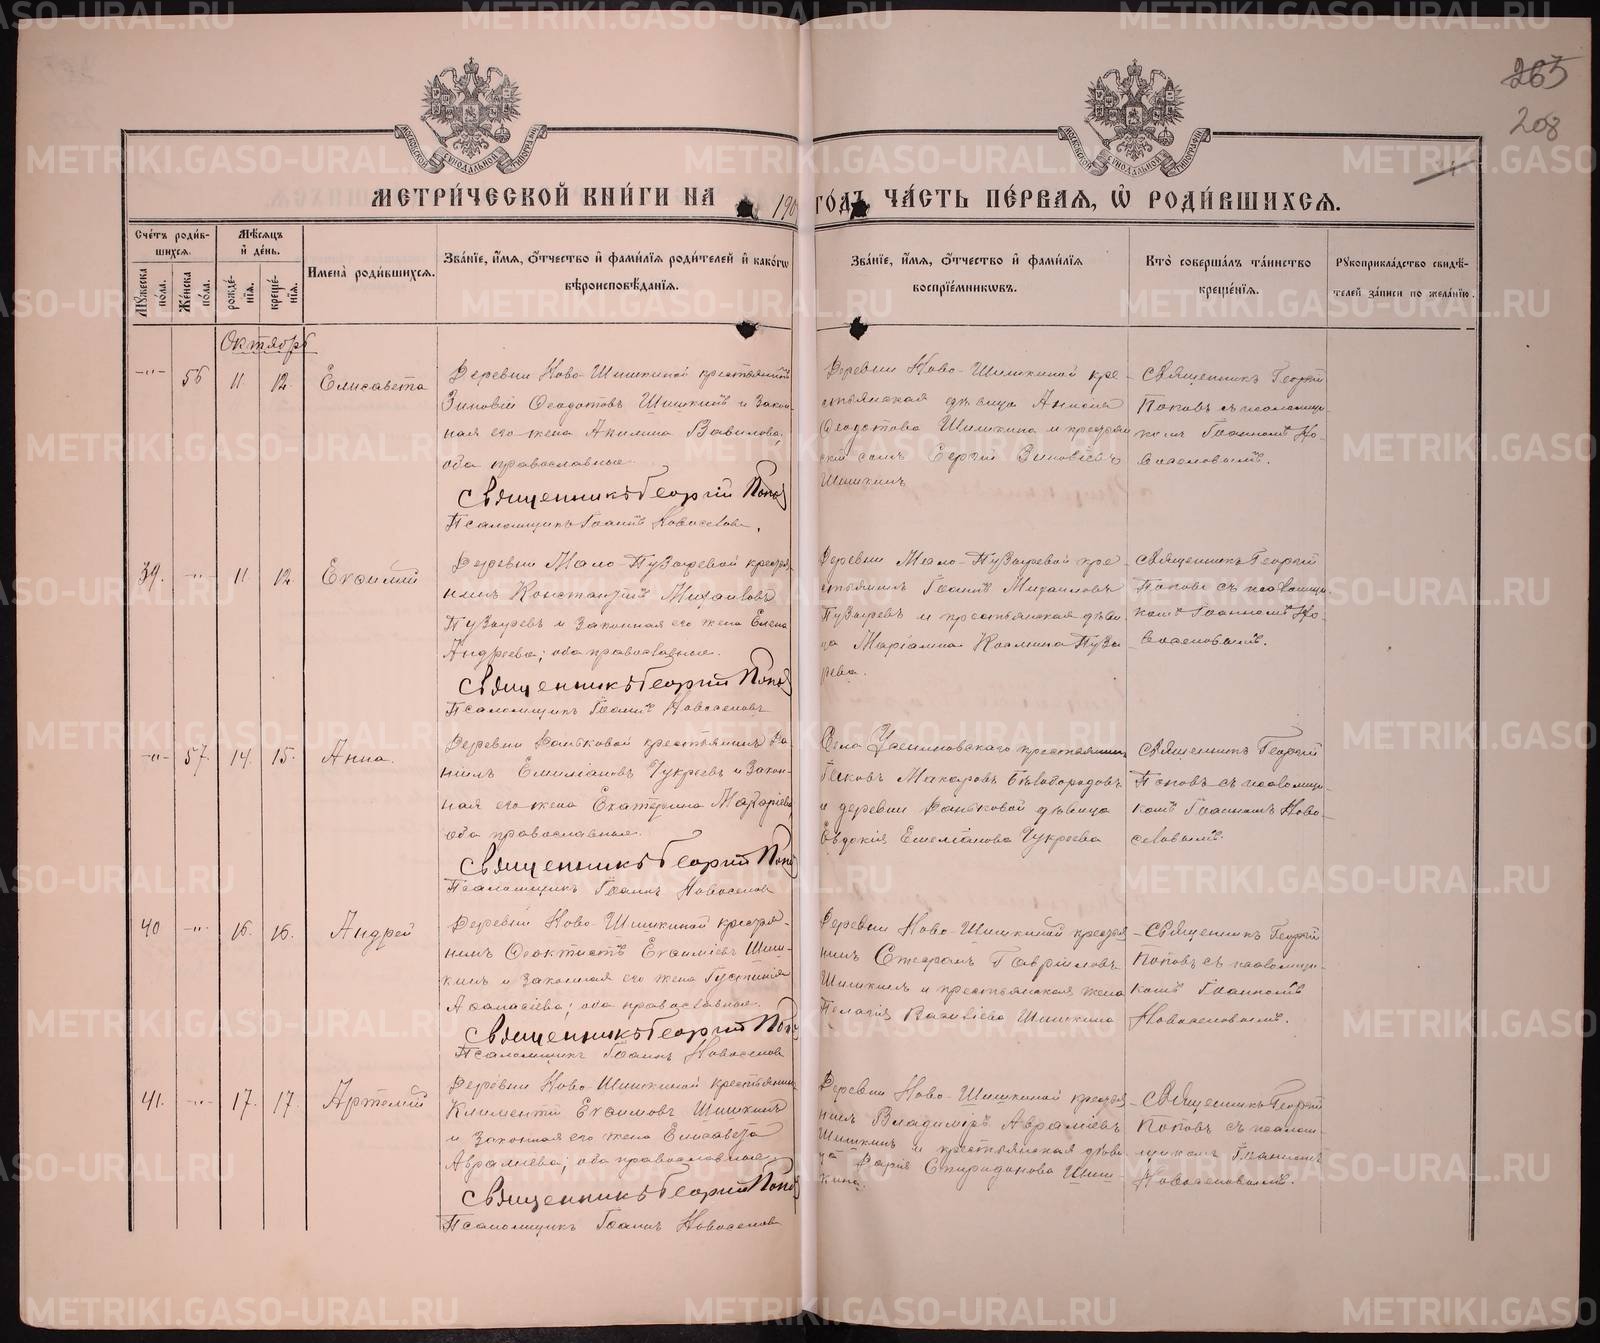 265
208
МЕТРИЧЕСКОЙ КНИГИ НА 190 ГОДЪ ЧАСТЬ ПЕРВАЯ, Ѿ РОДИВШИХСЯ.
Счетъ родив-
шихся.
Мѣсяцъ
и день.
Мужеска пола.
Женска пола.
рожде-
нія.
креще-
нія.
Имена родившихся.
Званіе, имя, отчество и фамилія родителей и какого
вѣроисповѣданія.
Званіе, имя, отчество и фамилія
воспріемниковъ.
Кто совершалъ таинство
крещенія.
Рукоприкладство свидѣ-
телей записи по желанію.
Октябрь
-"- 56 11 12. Елисавета
Деревни Ново-Шишкиной крестьянинъ
Зиновій Ѳеодотовъ Шишкинъ и закон-
ная его жена Акилина Вавилова,
оба православные.
Священникъ Георгій Попов
Псаломщикъ Іоаннъ Новоселовъ.
Деревни Ново-Шишкиной кре-
стьянская дѣвица Анисія
Ѳеодотова Шишкина и крестьян
скій сынъ Сергій Зиновіевъ
Шишкинъ
Священникъ Георгій
Поповъ съ псаломщи-
комъ Іоанномъ Но-
воселовымъ.
39. -"- 11 12. Евсимій
Деревни Мало-Пузыревой крестья-
нинъ Константинъ Михаиловъ
Пузыревъ и законная его жена Елена
Андреева; оба православные.
Священникъ Георгій Попов
Псаломщикъ Іоаннъ Новоселовъ
Деревни Мало-Пузыревой кре-
стьянинъ Іоаннъ Михаиловъ
Пузыревъ и крестьянская дѣви
ца Маріамна Козмина Пузы
рева.
Священникъ Георгій
Поповъ съ псаломщи-
комъ Іоанномъ Но-
воселовымъ.
-"- 57. 14. 15. Анна.
Деревни Ваньковой крестьянинъ Да-
ніилъ Емиліановъ Чукреевъ и закон-
ная его жена Екатерина Макаріева,
оба православные.
Священникъ Георгій Попов
Псаломщикъ Іоаннъ Новоселов
Села Усениновскаго крестьянин
Іаковъ Макаровъ Бѣлобородовъ
и деревни Ваньковой дѣвица
Евдокія Емеліанова Чукреева
Священникъ Георгій
Поповъ съ псаломщи-
комъ Іоанномъ Ново-
селовымъ.
40 -"- 16. 16. Андрей
Деревни Ново-Шишкиной крестья-
нинъ Ѳеоктистъ Евсиміевъ Шиш-
кинъ и законная его жена Іустинія
Аѳанасіева; оба православные.
Священникъ Георгій Поп
Псаломщикъ Іоаннъ Новоселов
Деревни Ново-Шишкиной крестья
нинъ Стефанъ Гавріиловъ
Шишкинъ и крестьянская жена
Пелагія Василіева Шишкина
Священникъ Георгій
Поповъ съ псаломщи-
комъ Іоанномъ
Новоселовымъ.
41. -"- 17. 17. Артемій
Деревни Ново-Шишкиной крестьянин
Климентъ Евсимовъ Шишкинъ
и законная его жена Елисавета
Авраміева; оба православные
Священникъ Георгій Попов
Псаломщикъ Іоаннъ Новоселов
Деревни Ново-Шишкиной крестья
нинъ Владиміръ Авраміевъ
Шишкинъ и крестьянская дѣви
ца Дарія Спиридонова Шиш-
кина
Священникъ Георгій
Поповъ съ псалом-
щикомъ Іоанномъ
Новоселовымъ.
METRIKI.GASO-URAL.RU